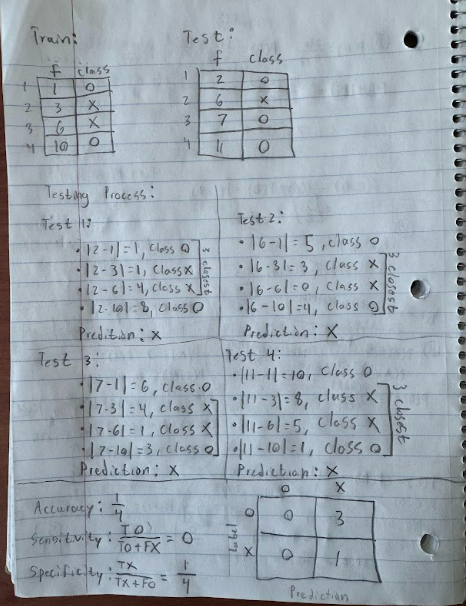 Train:
f class
1 1 O
2 3 X
3 6 X
4 10 O
Test:
f class
1 2 O
2 6 X
3 7 O
4 11 O
Testing Process:
Test 1:
• |2-1|=1, Class O
• |2-3|=1, Class X
• |2-6|=4, Class X
• |2-10|=8, Class O
3 closest
Prediction: X
Test 2:
• |6-1|=5, class O
• |6-3|=3, Class X
• |6-6|=0, Class X
• |6-10|=4, Class O
3 closest
Prediction: X
Test 3:
• |7-1|=6, class O
• |7-3|=4, class X
• |7-6|=1, Class X
• |7-10|=3, class O
Prediction: X
Test 4:
• |11-1|=10, Class O
• |11-3|=8, class X
• |11-6|=5, Class X
• |11-10|=1, Class O
3 closest
Prediction: X
Accuracy: 1/4
Sensitivity: TO/TO+FX = 0
Specificity: TX/TX+FO = 1/4
O X
O 0 3
X 0 1
Label
Prediction